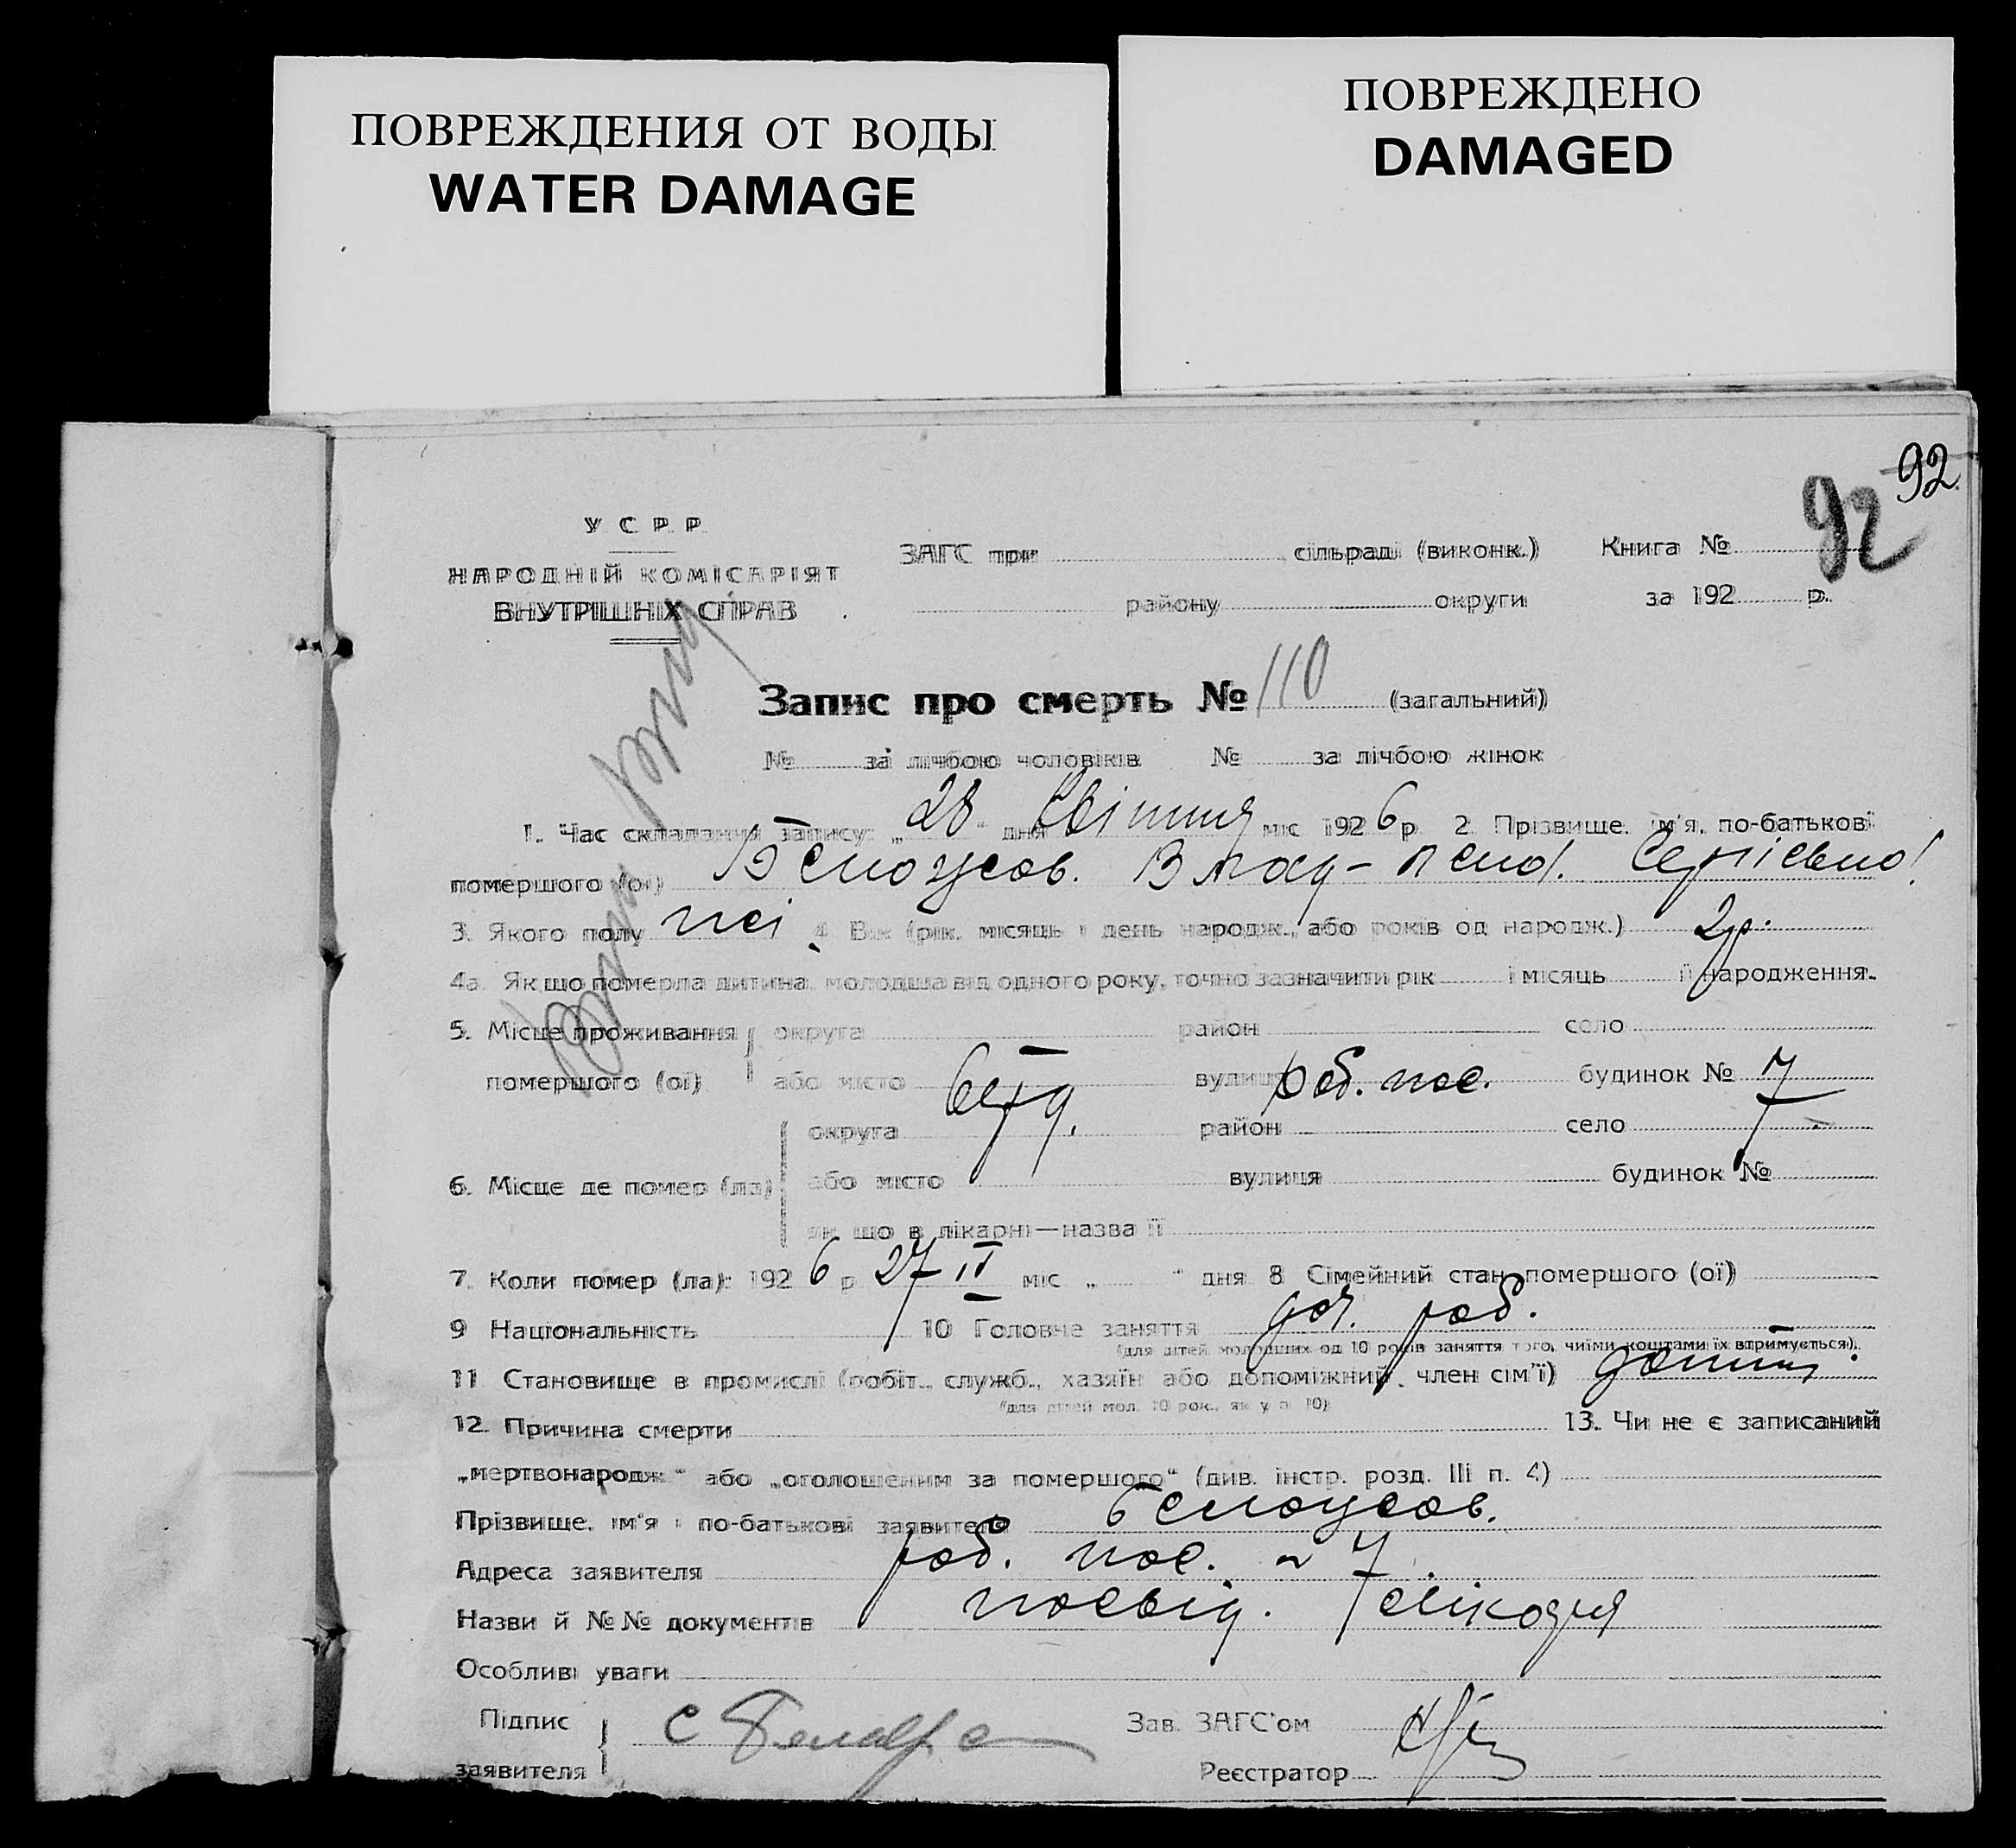 ПОВРЕЖДЕНИЯ ОТ ВОДЫ
WATER DAMAGE
ПОВРЕЖДЕНО
DAMAGED
92
92
У С Р Р
НАРОДНІЙ КОМІСАРІЯТ
ВНУТРІШНІХ СПРАВ
ЗАГС при сільраді (виконк.) Книга №
району округи за 192 р.
Запис про смерть № 110 (загальний)
№ за лічбою чоловіків № за лічбою жінок
1. Час складання запису: „28" дня Квітня міс 1926 р 2 Прізвище, ім'я, по-батькові
помершого (ої) Белоусов.
3. Якого полу 4 Вік (рік, місяць і день народж., або років од народж.) 2р.
4а. Як що померла дитина молодша від одного року, точно зазначити рік і місяць її народження.
5. Місце проживання округа район село
помершого (ої) або місто вулиця роб. пос. будинок № 7
округа район село
6. Місце де помер (ла) або місто вулиця будинок №
як що в лікарні—назва її
7. Коли помер (ла): 1926 р 27 IV міс „ " дня 8 Сімейний стан помершого (ої)
9 Національність 10 Головне заняття роб.
(для дітей молодших од 10 років заняття того, чиїми коштами їх втримується).
11 Становище в промислі (робіт., служб., хазяїн або допоміжний член сім'ї)
(для дітей мол. 10 рок., як у п. 10)
12. Причина смерти 13. Чи не є записаний
„мертвонародж." або „оголошеним за помершого" (див. інстр. розд. III п. 4)
Прізвище, ім'я і по-батькові заявителя Белоусов.
Адреса заявителя роб. пос. 7
Назви й №№ документів посвід.
Особливі уваги
Підпис
заявителя
Зав. ЗАГС'ом
Реєстратор